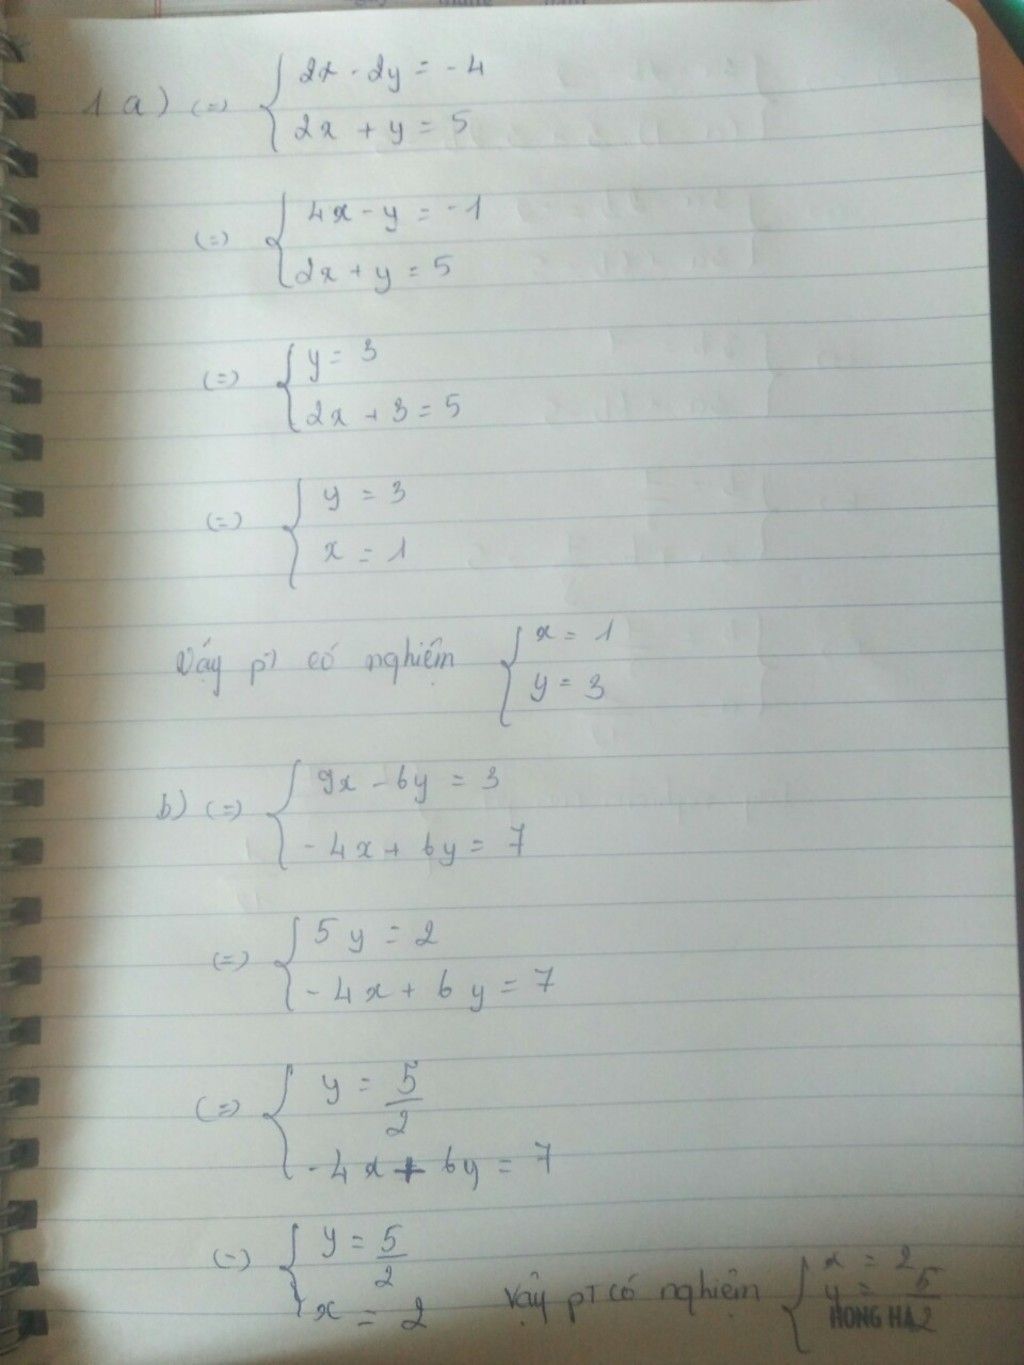 1 a) (=) { 2x - 2y = - 4
2x + y = 5
(=) { 4x - y = - 1
2x + y = 5
(=) { y = 3
2x + 3 = 5
(=) { y = 3
x = 1
Vậy pt có nghiệm { x = 1
y = 3
b) (=) { 9x - 6y = 3
- 4x + 6y = 7
(=) { 5y = 2
- 4x + 6y = 7
(=) { y = 5/2
- 4x + 6y = 7
(=) { y = 5/2
x = 2
Vậy pT có nghiệm { x = 2
y = 5/2
HONG HA